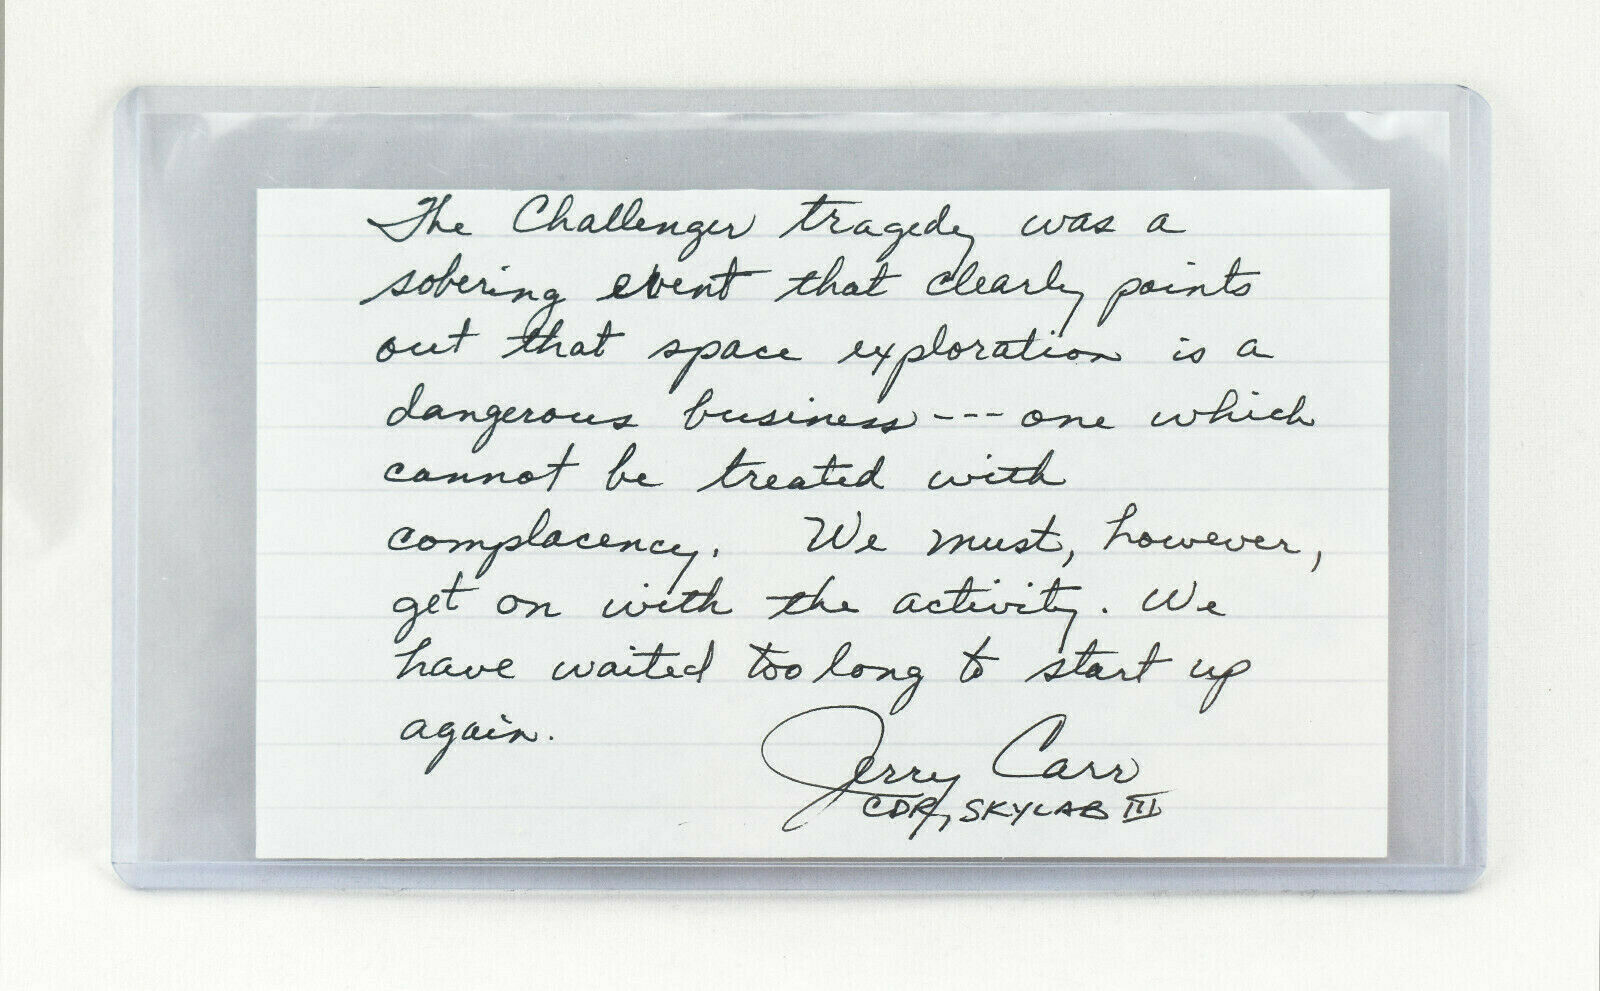 The Challenger tragedy was a
sobering event that clearly points
out that space exploration is a
dangerous business --- one which
cannot be treated with
complacency. We must, however,
get on with the activity. We
have waited too long to start up
again.
Jerry Carr
CDR, SKYLAB III